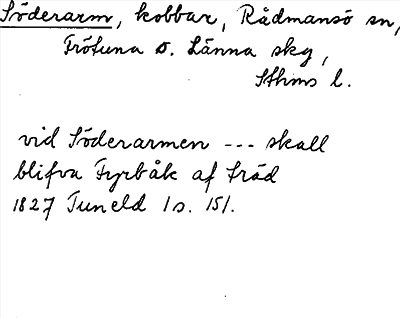 Söderarm, kobbar, Rådmansö sn,
Frötuna o. Länna skg,
Sthms l.
vid Söderarmen --- skall
blifva Fyrbåk af träd
1827 Tuneld 1 s. 151.